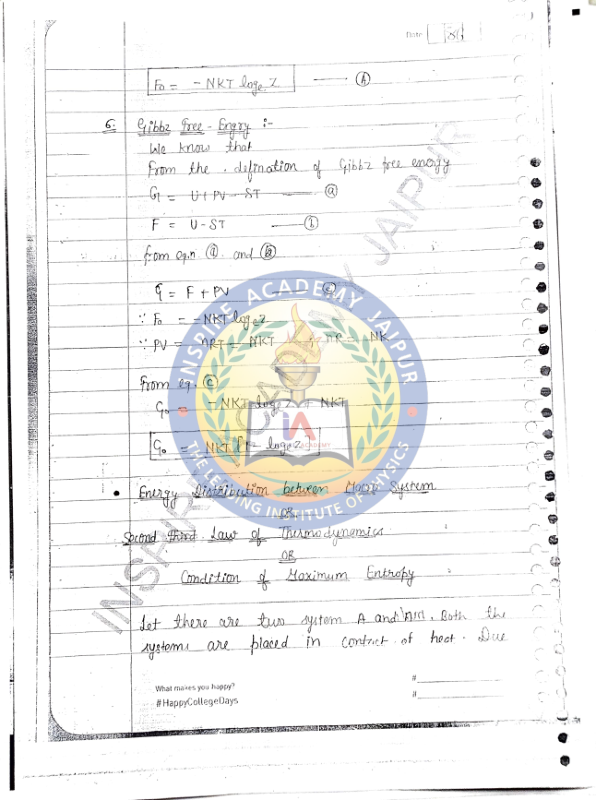 Date
F₀ = -NKT logₑ Z —— Ⓐ
6. Gibbz Free-Engry :-
We know that
From the . defination of Gibbz free energy
G = U+PV-ST —— ⓐ
F = U-ST —— ⓑ
from eqn ⓐ and ⓑ
G = F + PV —— ⓒ
∵ F₀ = -NKT logₑ Z
∵ PV = nRT = NKT ; nR = NK
From eq. ⓒ
G₀ = -NKT logₑ Z + NKT
G₀ = NKT [1- logₑ Z]
• Energy Distribution between Macro System
OR
Second Third Law of Thermodynamics
OR
Condition of Maximum Entropy
Let there are two system A and A'. Both the
systems are placed in contact of heat. Due
What makes you happy?
#HappyCollegeDays
#
#
INSPIRE ACADEMY JAIPUR
THE LEADING INSTITUTE OF PHYSICS
iA
ACADEMY
INSPIRE ACADEMY JAIPUR